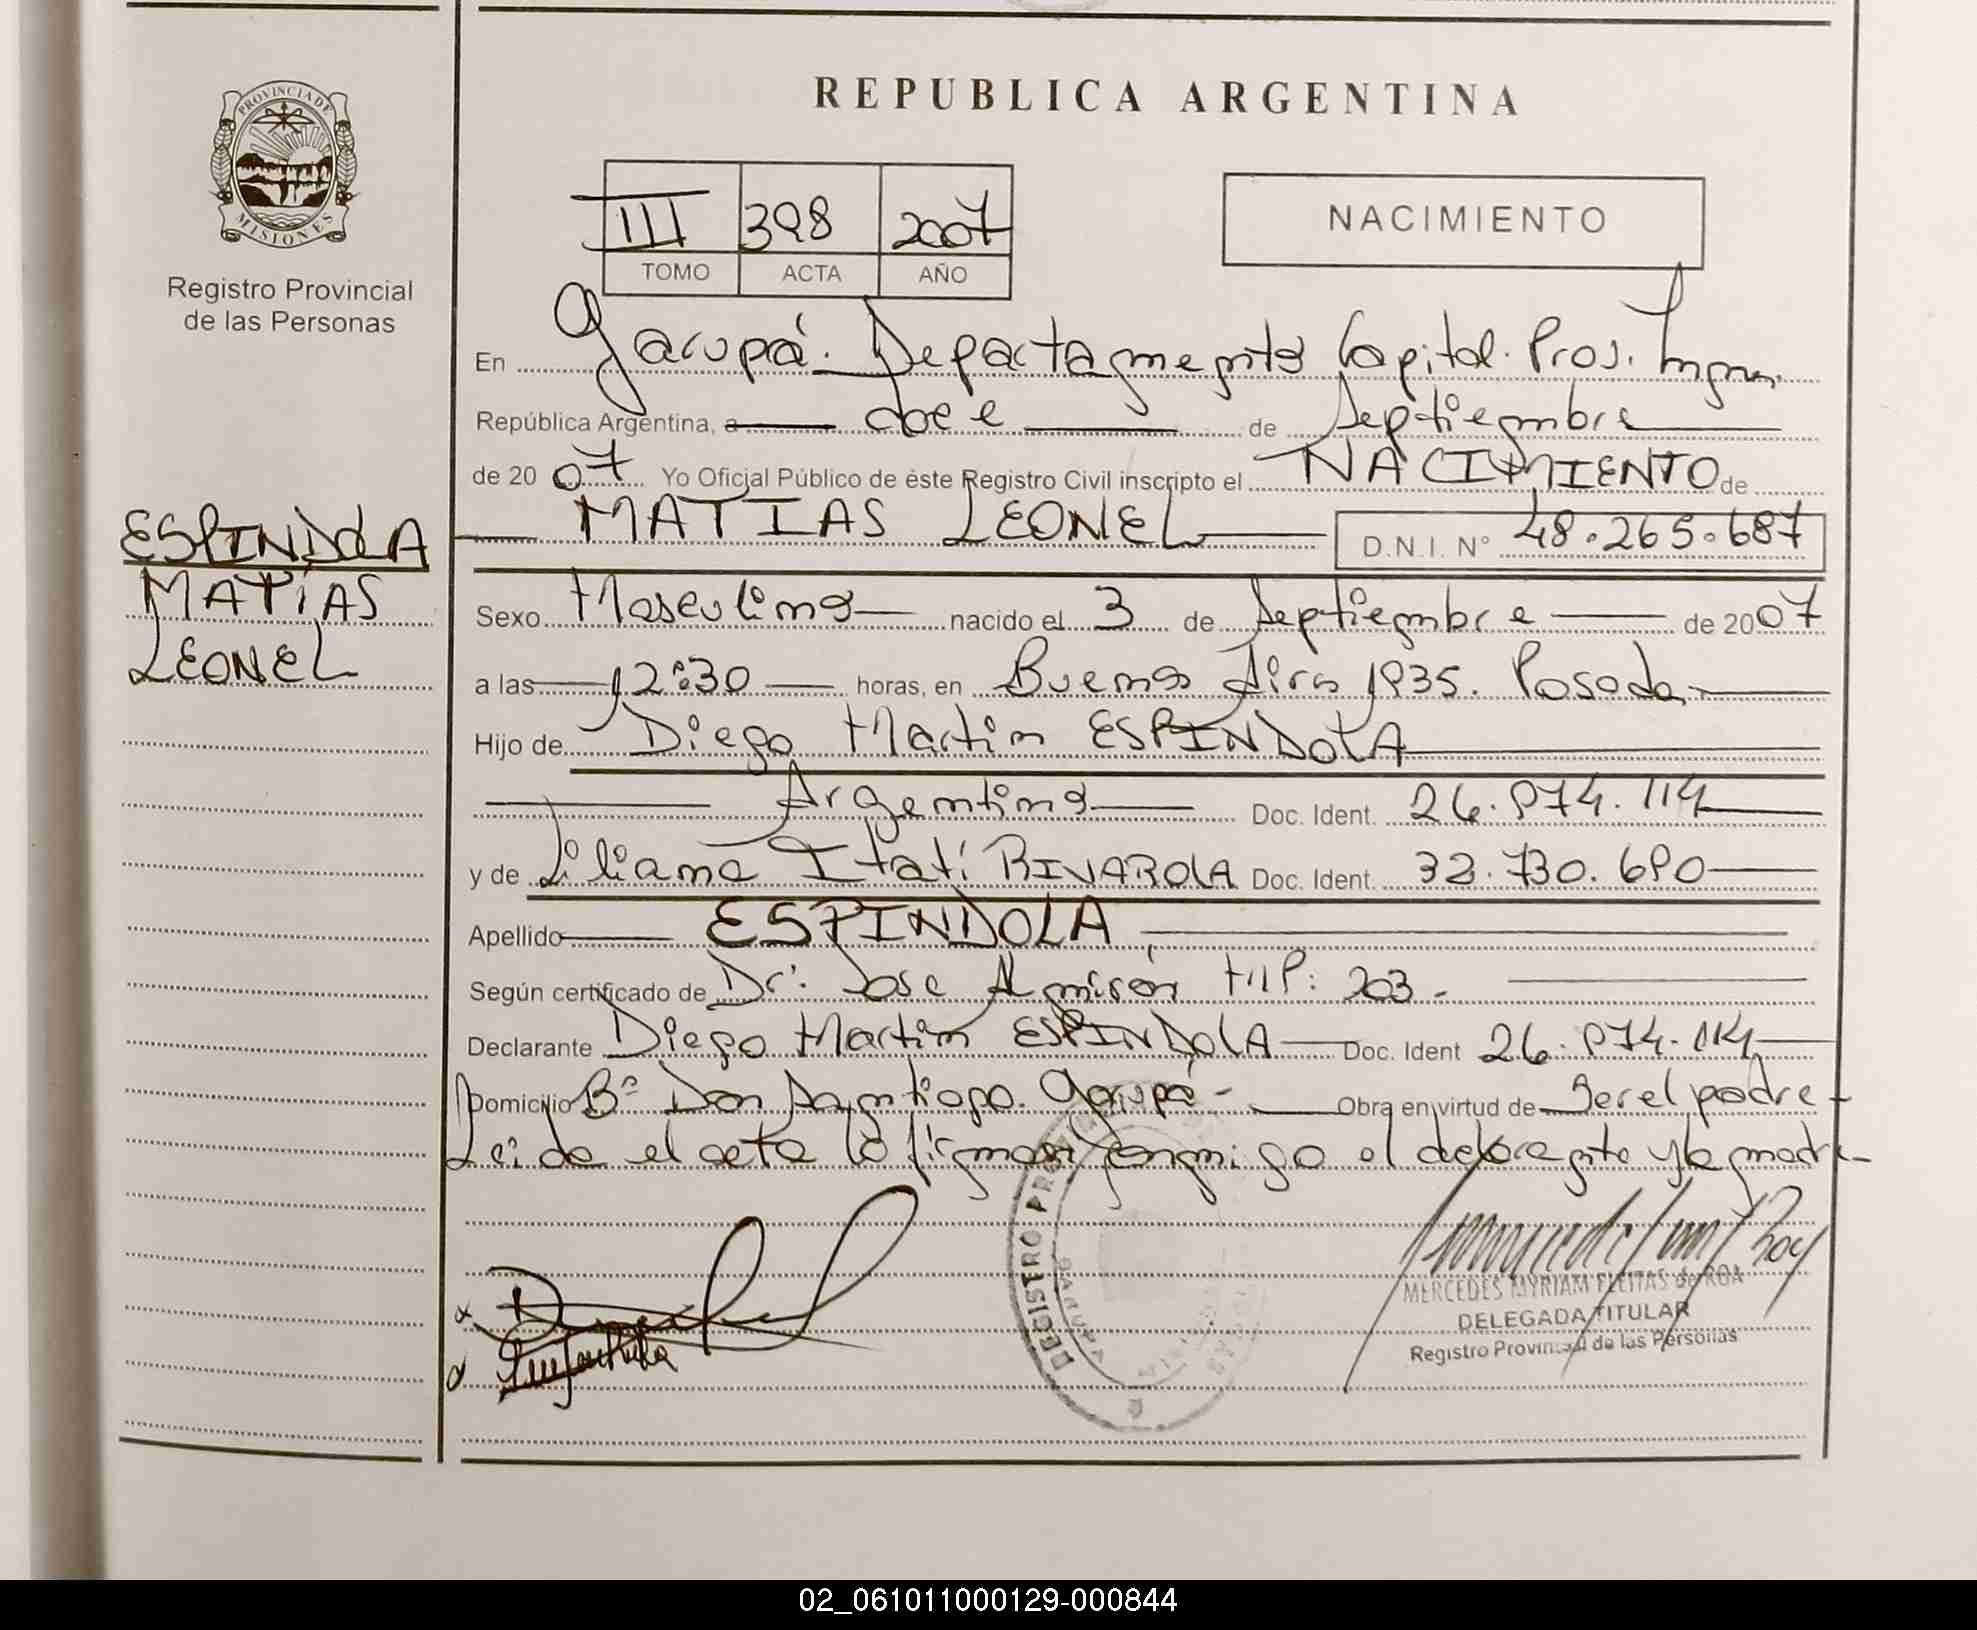 REPUBLICA ARGENTINA
PROVINCIA DE MISIONES
Registro Provincial
de las Personas
III 398 2007
TOMO ACTA AÑO
NACIMIENTO
En Garupá. Departamento Capital. Pros.
República Argentina, a doce de Septiembre
de 2007 Yo Oficial Público de éste Registro Civil inscripto el NACIMIENTO de
MATIAS LEONEL D.N.I. Nº 48.265.687
ESPINDOLA
MATIAS
LEONEL
Sexo Masculino nacido el 3 de Septiembre de 2007
a las 12:30 horas, en Buenos Aires 1935. Posadas
Hijo de Diego Martin ESPINDOLA
Argentino Doc. Ident. 26.974.114
y de Liliana Itatí RIVAROLA Doc. Ident. 33.730.690
Apellido ESPINDOLA
Según certificado de Dr. Jose Almirón M.P: 203.
Declarante Diego Martin ESPINDOLA Doc. Ident 26.974.114
Domicilio Bº Don Santiago. Garupá - Obra en virtud de Ser el padre
Leida el acta la firman conmigo el declarante y la madre
REGISTRO PROVINCIAL
MERCEDES MYRIAM FLEITAS de ROA
DELEGADA TITULAR
Registro Provincial de las Personas
02_061011000129-000844